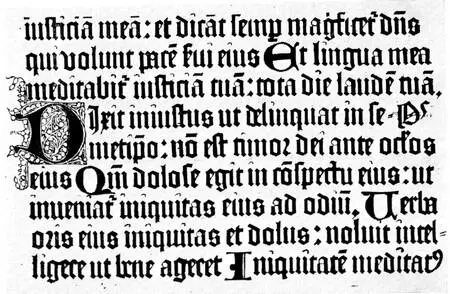 iusticiā meā: et dicāt semꝑ magficet̄ dn̄s
qui volunt pacē s̄ui eius Et lingua mea
meditabit̄ iusticiā tuā: tota die laudē tuā.
Dixit iniustus ut delinquat in se- Ps̄
metip̄o: nō est timor dei ante oc̄los
eius Qm̄ dolose egit in cōspectu eius: ut
inueniat̄ iniquitas eius ad odiū. Uerba
oris eius iniquitas et dolus: noluit intel-
ligere ut bene ageret Iniquitatē meditatꝰ